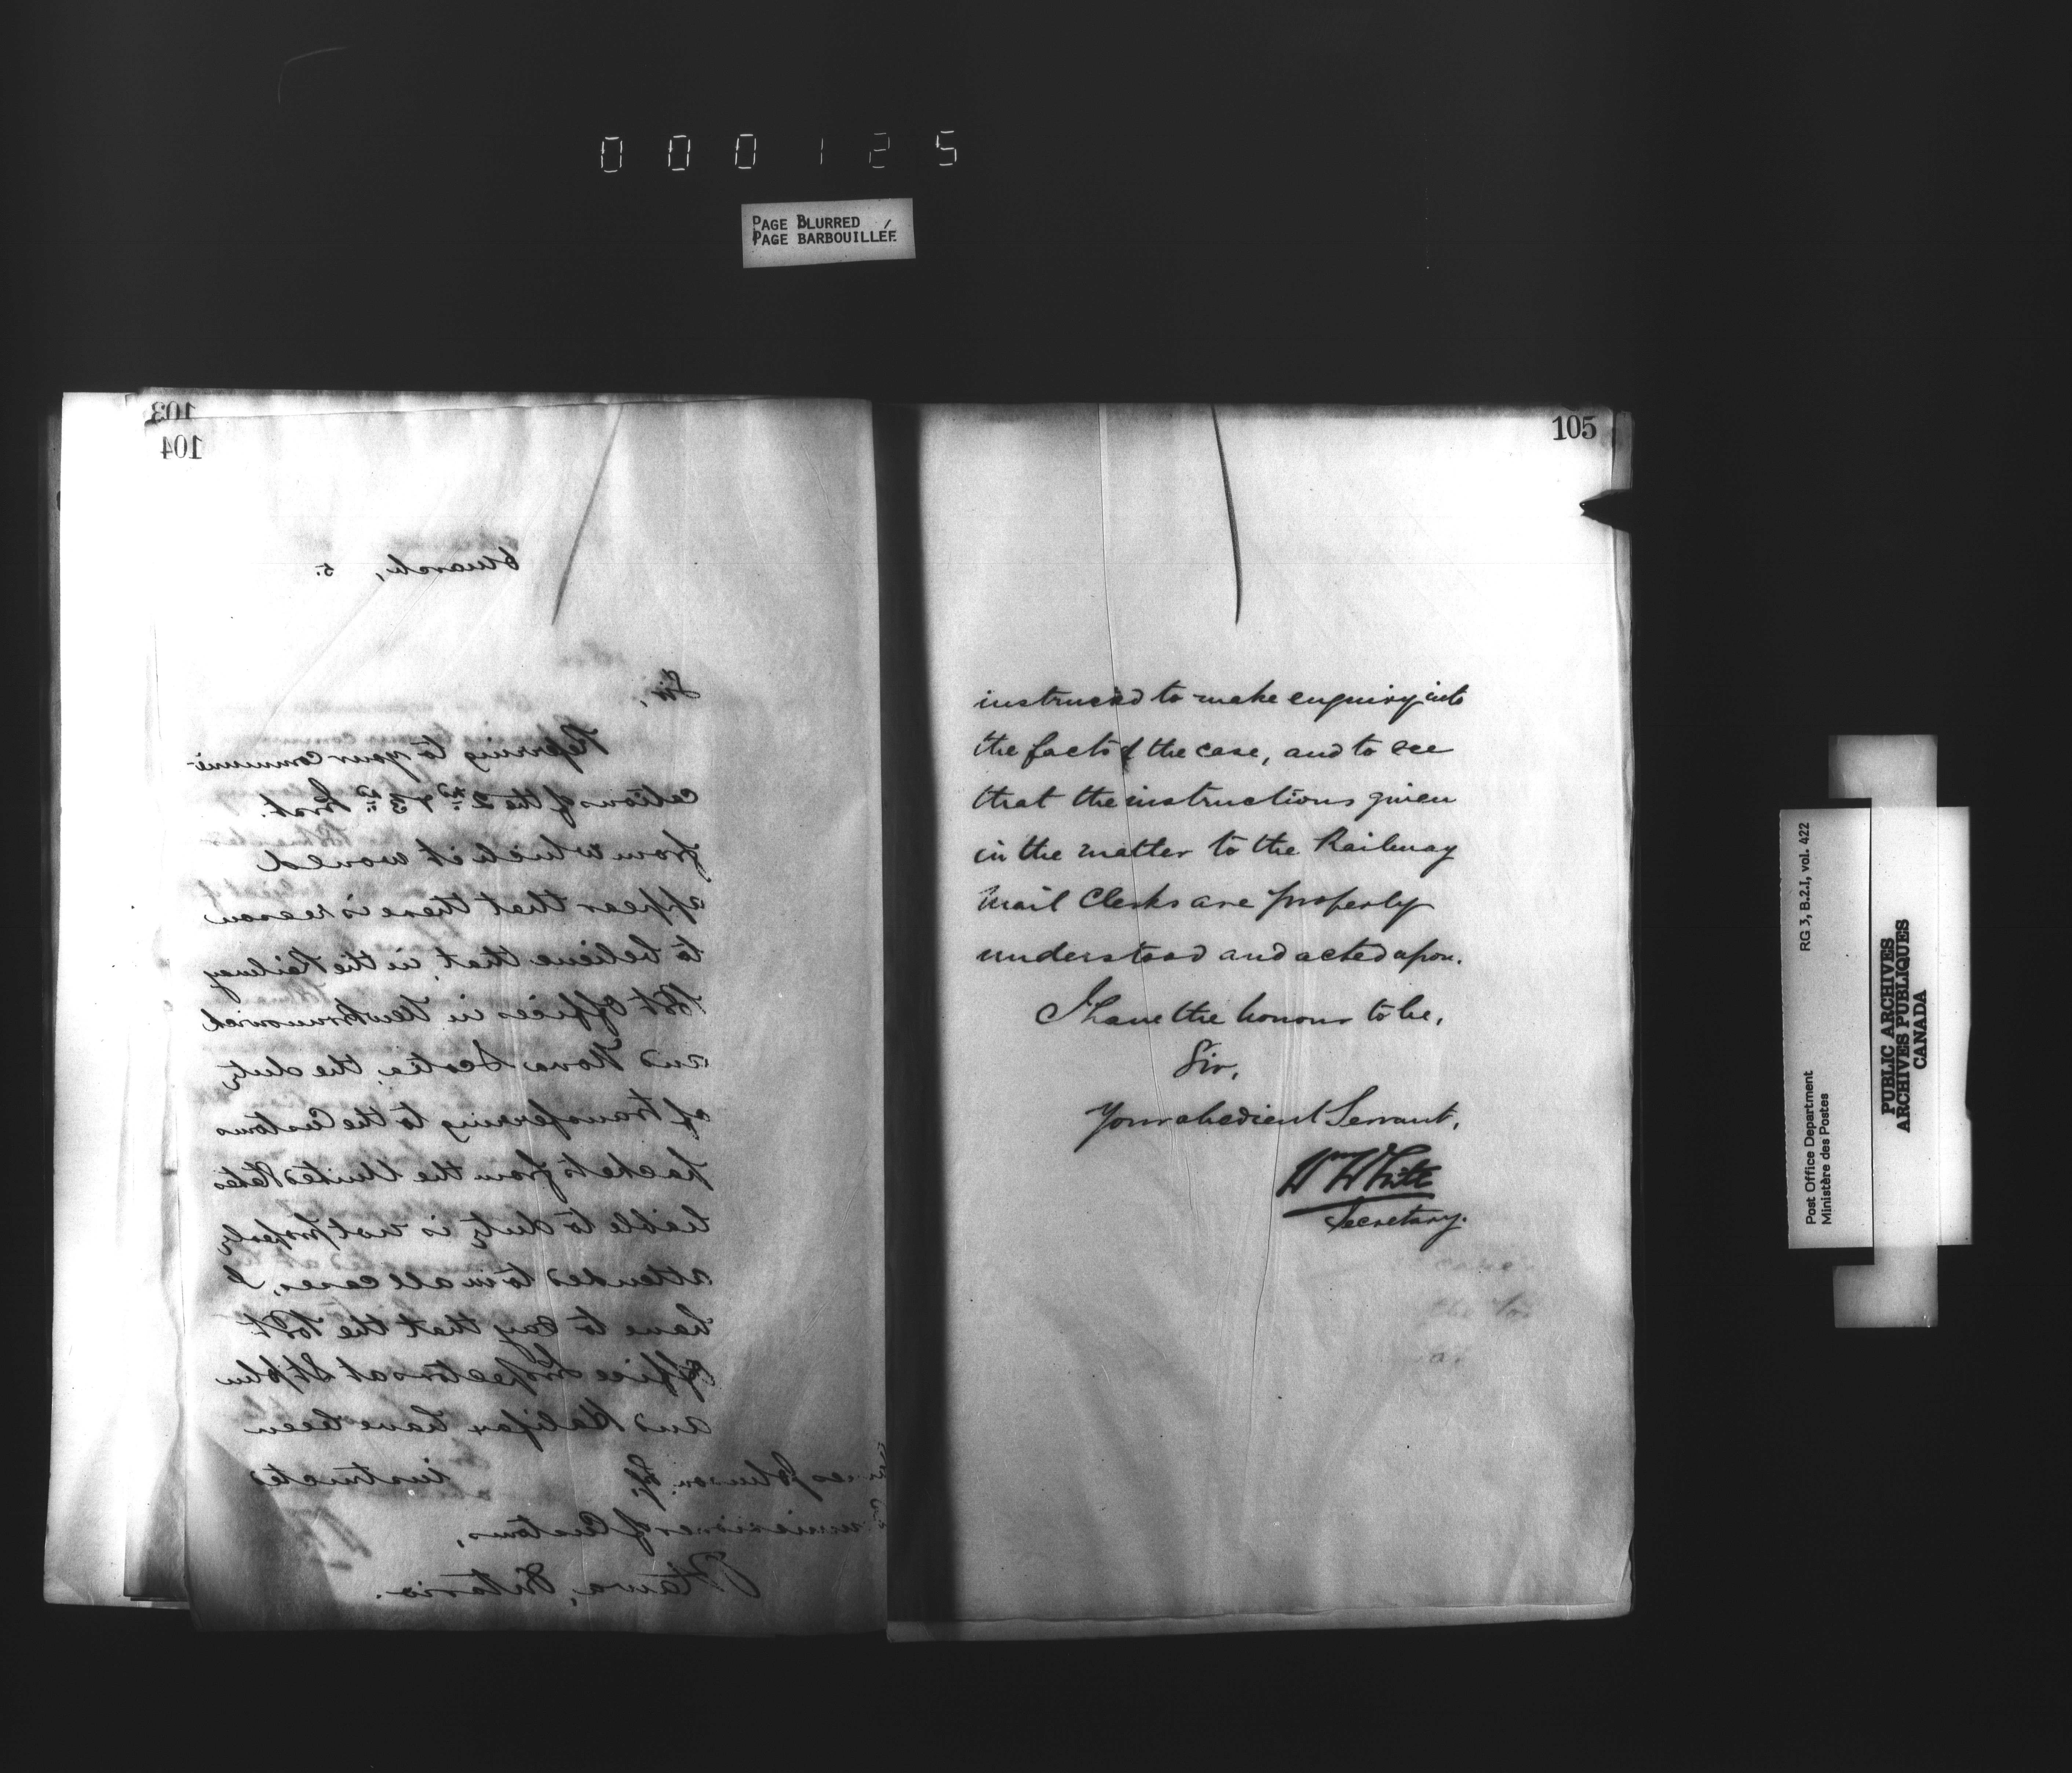 000125
PAGE BLURRED
PAGE BARBOUILLÉE
103
104
6 March, 5.
Sir,
Referring to your communi-
cations of the 2nd & 3rd Inst.
from which it would
appear that there is reason
to believe that in the Railway
Post Offices in New Brunswick
and Nova Scotia, the duty
of transferring to the Customs
packets from the United States
liable to duty is not properly
attended to in all cases, I
have to say that the Post
Office Inspectors at St John
and Halifax have been
instructed
Johnson Esq,
of Customs,
Ottawa, Ontario.
105
instructed to make enquiry into
the facts of the case, and to see
that the instructions given
in the matter to the Railway
Mail Clerks are properly
understood and acted upon.
I have the honour to be,
Sir,
Your obedient Servant,
Wm White
Secretary.
Post Office Department
Ministère des Postes
RG 3, B.2.I, vol. 422
PUBLIC ARCHIVES
ARCHIVES PUBLIQUES
CANADA